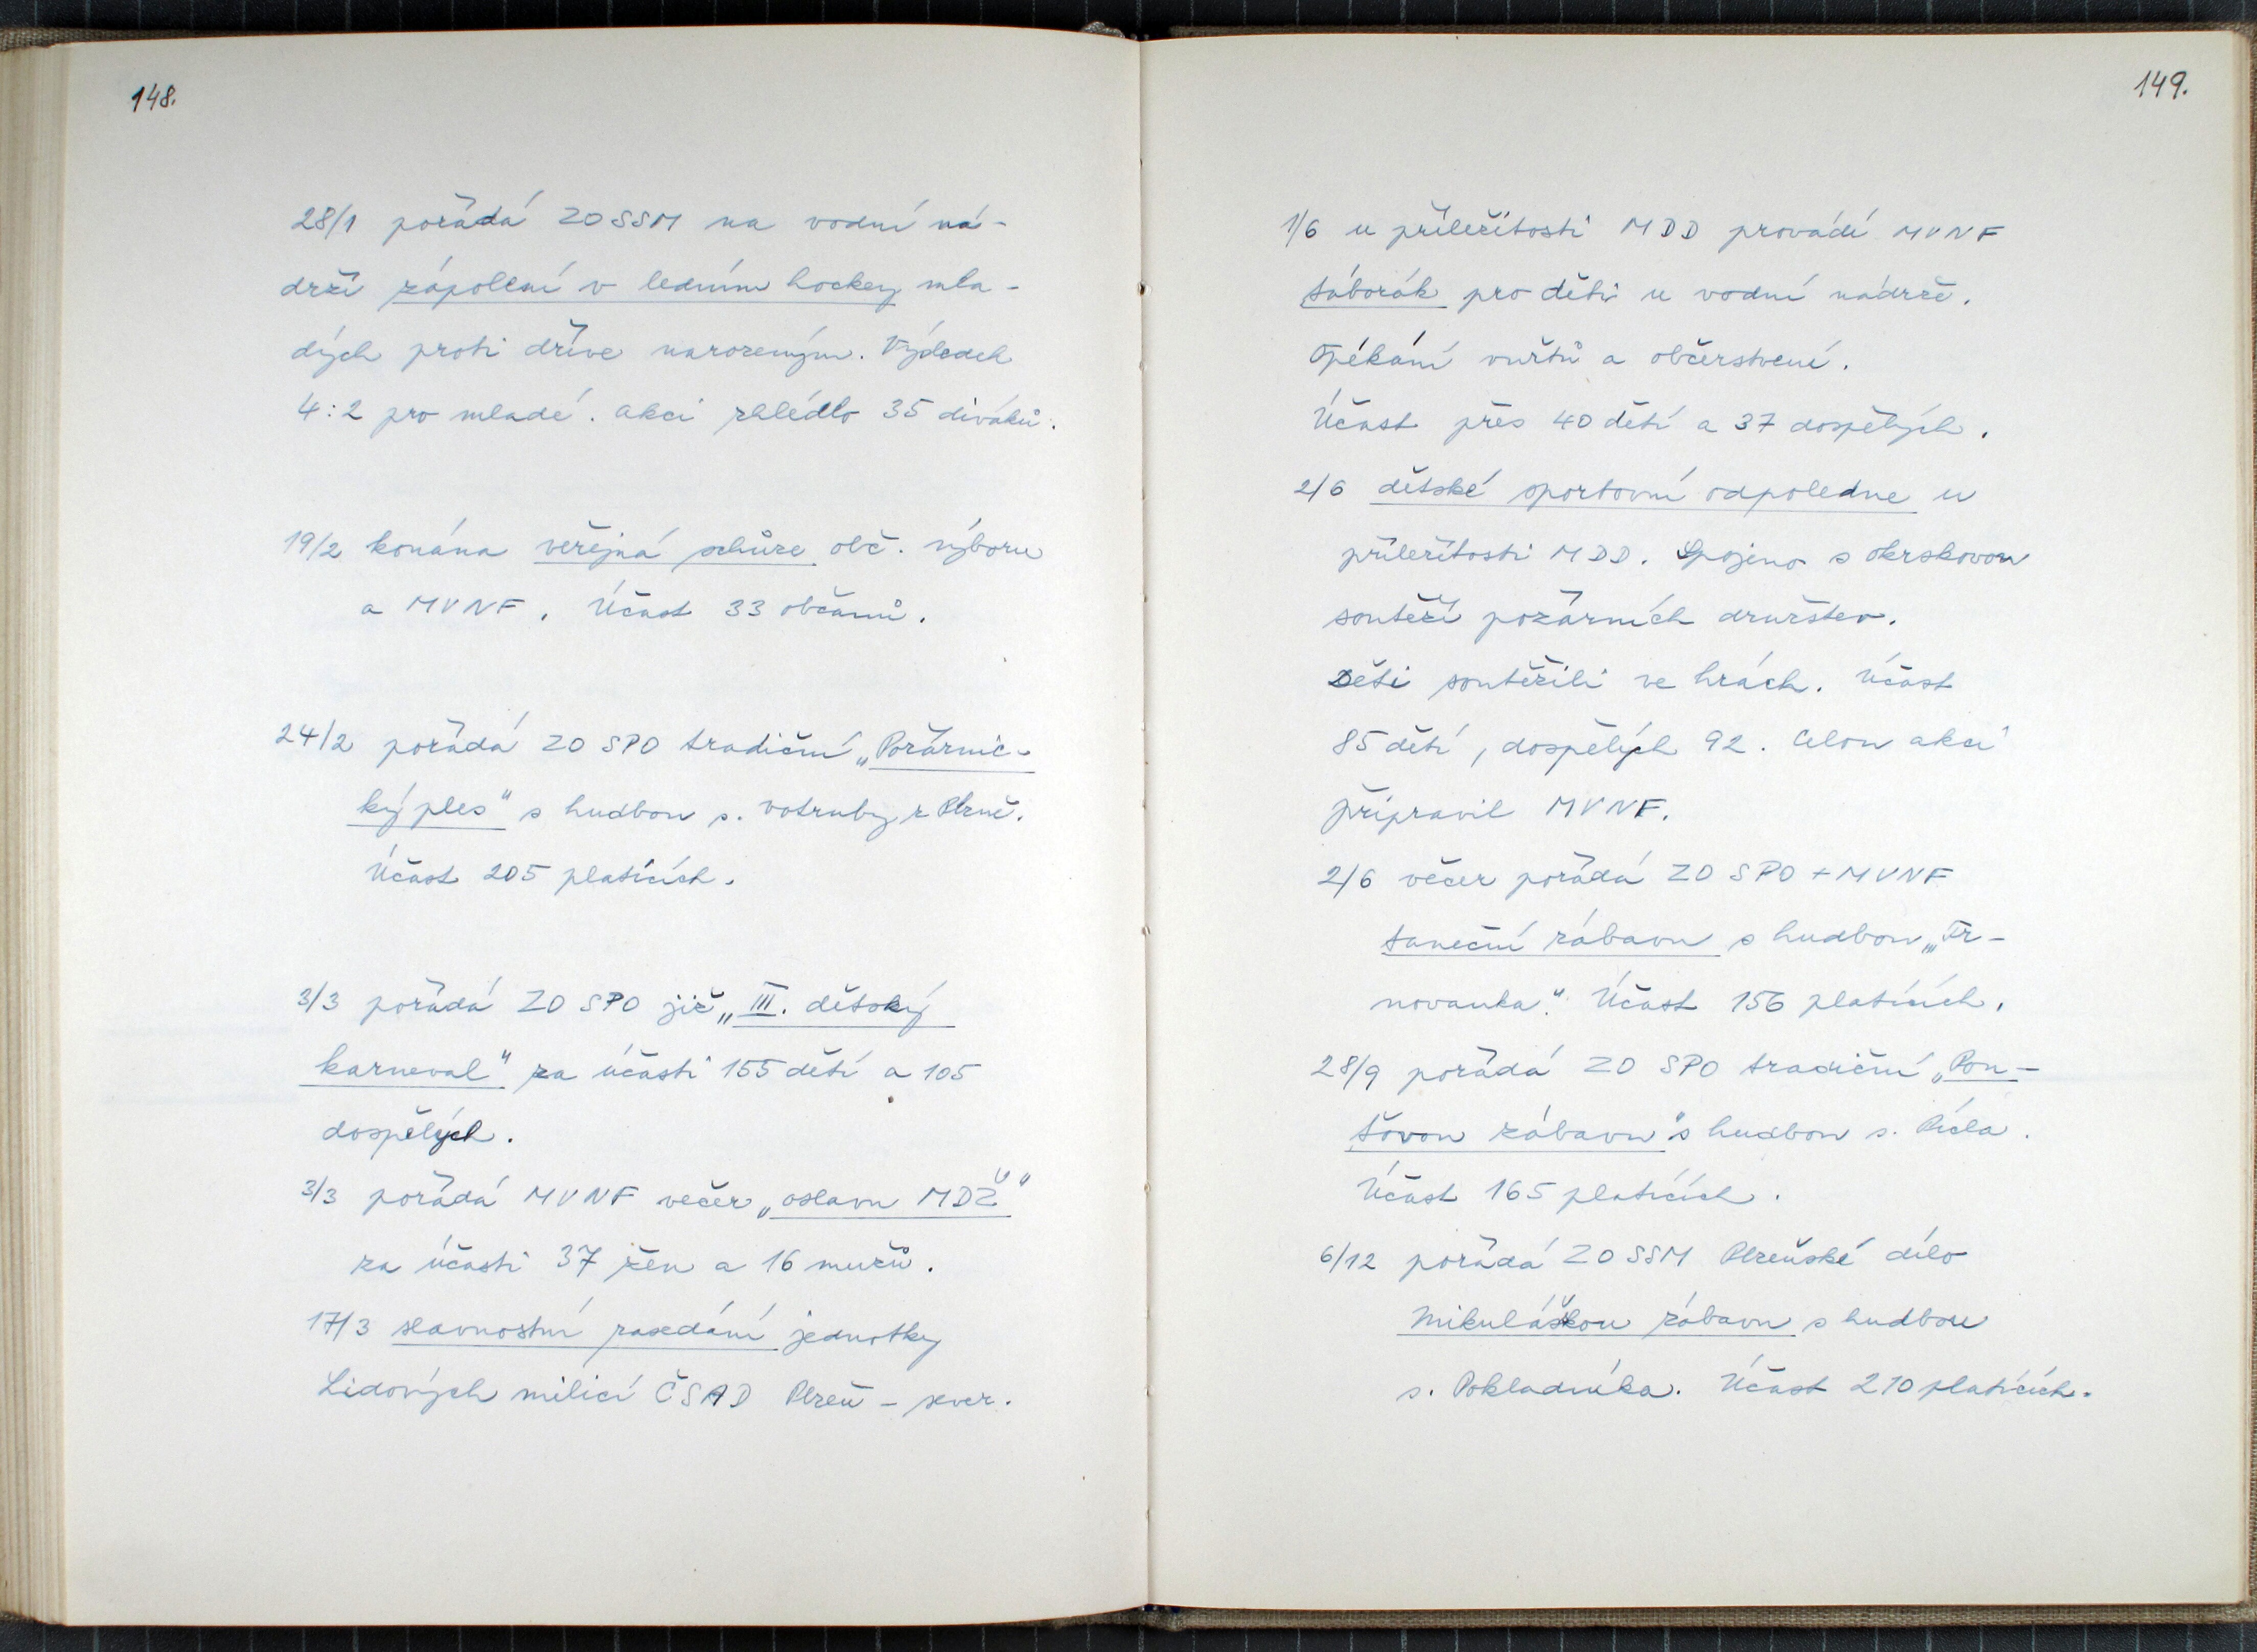 148.
28/1 pořádá ZO SSM na vodní ná-
drži zápolení v ledním hockey mla-
dých proti dříve narozeným. Výsledek
4:2 pro mladé. Akci zhlédlo 35 diváků.
19/2 konána veřejná schůze obč. výboru
a MVNF. Účast 33 občanů.
24/2 pořádá ZO SPO tradiční „Požárnic-
ký ples" s hudbou s. Votruby z Plzně.
Účast 205 platících.
3/3 pořádá ZO SPO již „III. dětský
karneval" za účasti 155 dětí a 105
dospělých.
3/3 pořádá MVNF večer „oslavu MDŽ"
za účasti 37 žen a 16 mužů.
17/3 slavnostní zasedání jednotky
Lidových milicí ČSAD Plzeň - sever.
149.
1/6 u příležitosti MDD provádí MVNF
táborák pro děti u vodní nádrže.
Opékání vuřtů a občerstvení.
Účast přes 40 dětí a 37 dospělých.
2/6 dětské sportovní odpoledne u
příležitosti MDD. Spojeno s okrskovou
soutěží požárních družstev.
Děti soutěžili ve hrách. Účast
85 dětí, dospělých 92. Celou akci
připravil MVNF.
2/6 večer pořádá ZO SPO + MVNF
taneční zábavu s hudbou „Tr-
novanka". Účast 156 platících.
28/9 pořádá ZO SPO tradiční „Pou-
ťovou zábavu" s hudbou s.
Účast 165 platících.
6/12 pořádá ZO SSM Plzeňské dílo
Mikulášskou zábavu s hudbou
s. Pokladníka. Účast 210 platících.